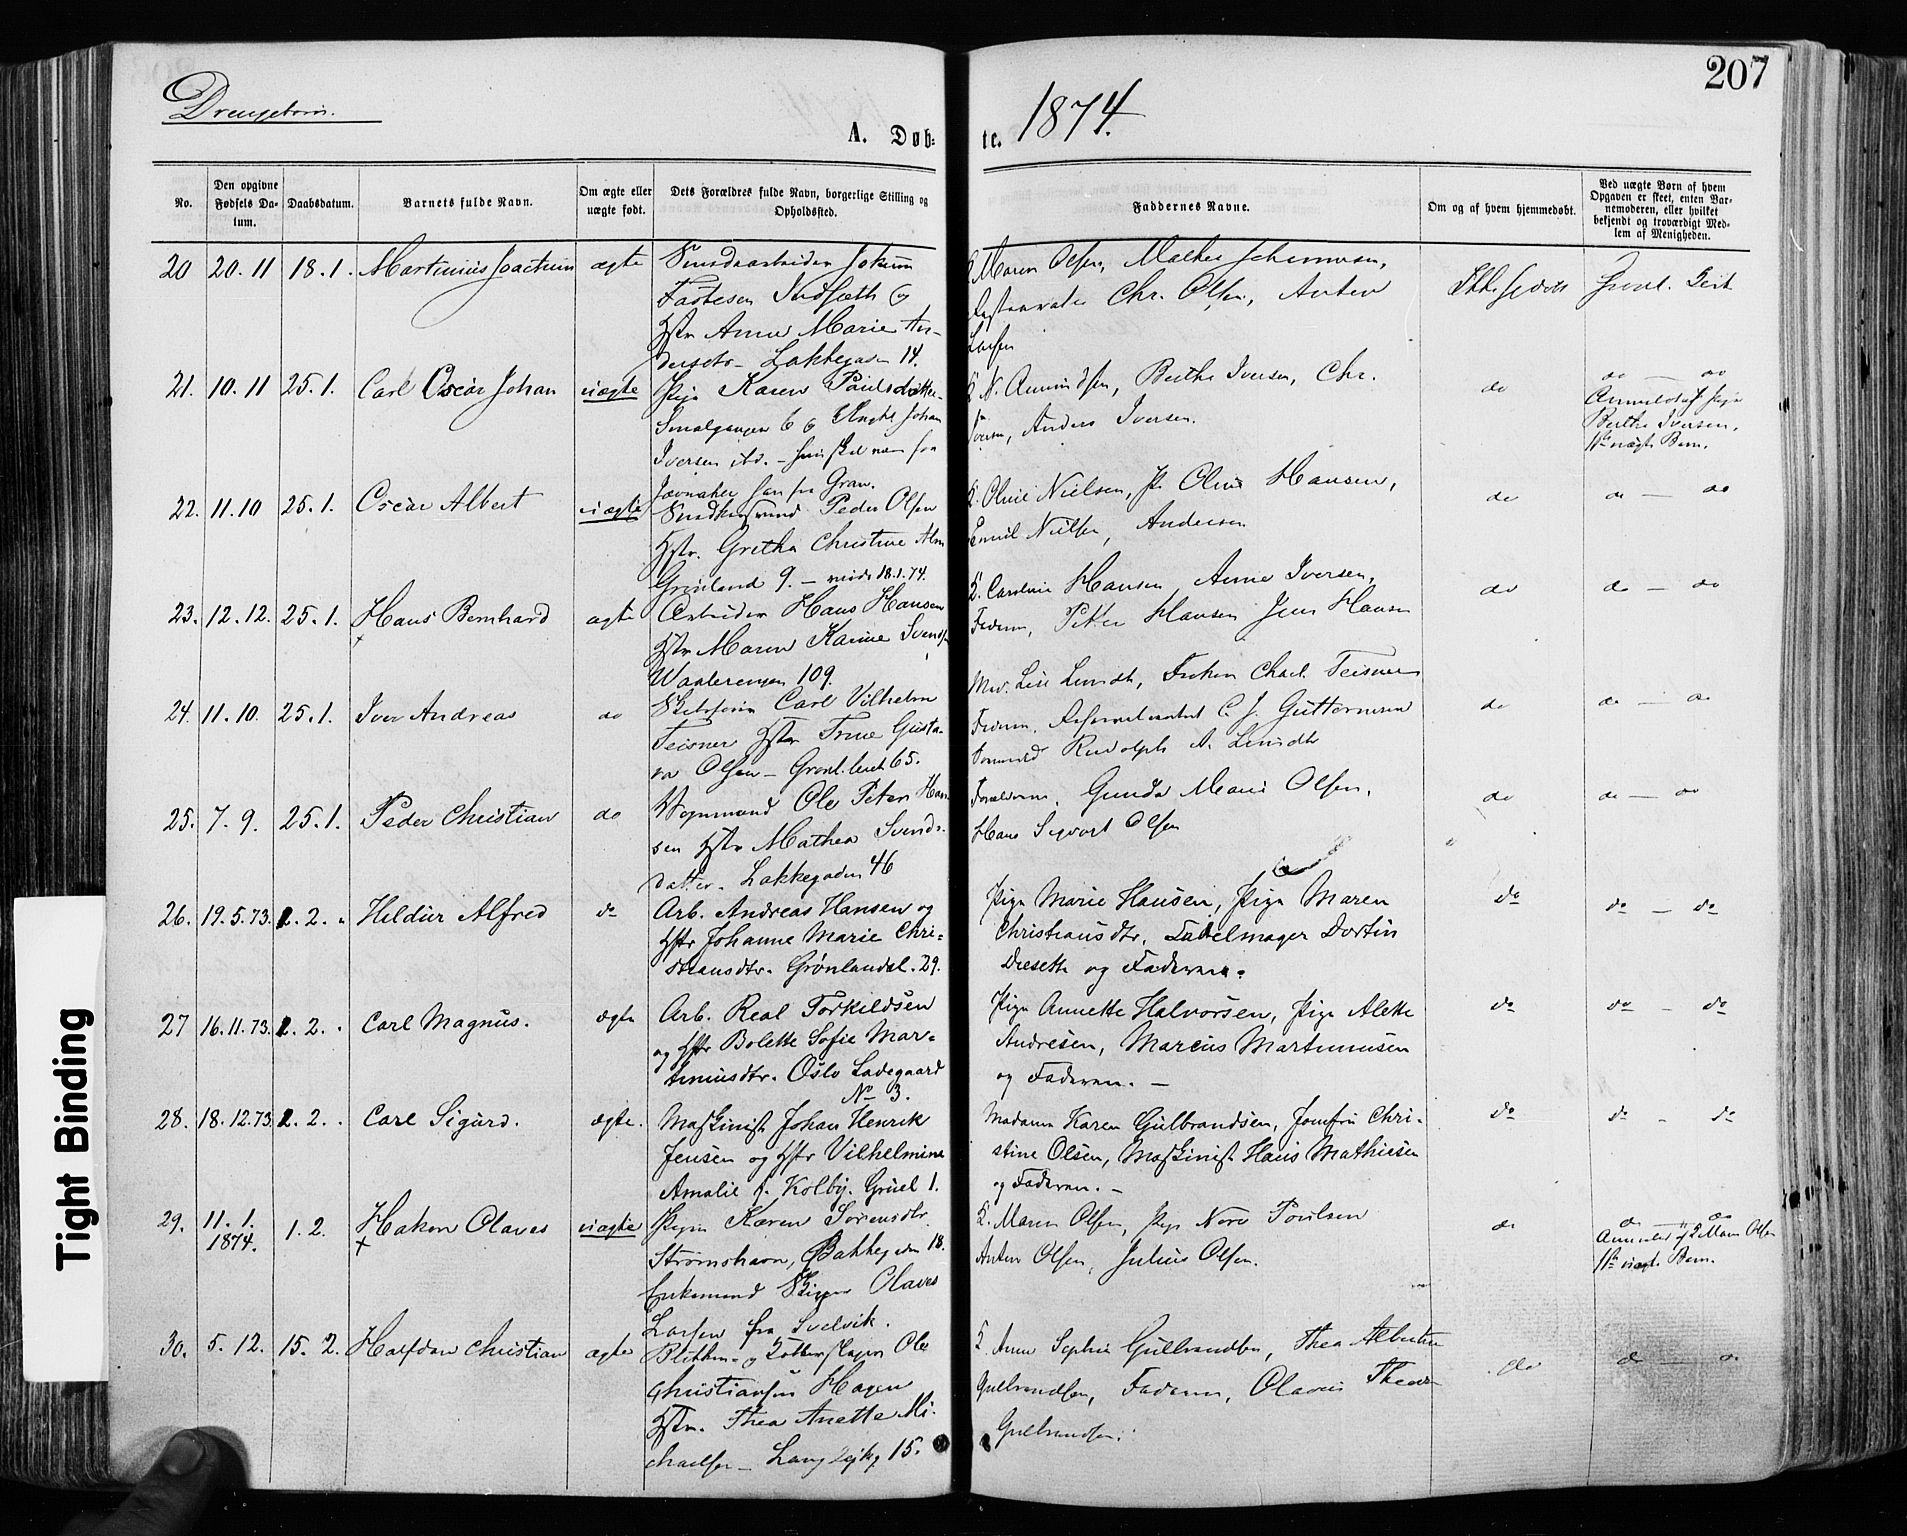 207
Drengebørn.
A. Døb-
te. 1874.
No.
Den opgivne
Fødsels Da-
tum.
Daabsdatum.
Barnets fulde Navn.
Om ægte eller
uægte født.
Dets Forældres fulde Navn, borgerlige Stilling og
Opholdssted.
Faddernes Navne.
Om og af hvem hjemmedøbt.
Ved uægte Børn af hvem
Opgaven er skeet, enten Bar-
nemoderen, eller hvilket
bekjendt og troværdigt Med-
lem af Menigheden.
20 20.11 18.1. Martinius Joachim ægte
Jokum
Fastesen og
Hstr Anne Marie An-
dersdtr. Lakkegaden 14.
Maren Olsen, Mathea Johannesen,
Chr. Olsen, Anton
Larsen
21. 10.11 25.1. Carl Oscar Johan uægte
Pige Karen Paulsdatter
Smalgangen 6 og Johan
Iversen ibd. fra
Jevnaker han fra Gran.
N. Amundsen, Berthe Iversen, Chr.
Iversen, Anders Iversen.
do
do — do
Anmeldt af Pige
Berthe Iversen,
1ste uægte Barn.
22. 11.10 25.1. Oscar Albert uægte
Peder Olsen
Hstr. Grethe Christine
Grønland 9. — 18.1.74.
Oline Nielsen, P. Oline Hansen,
Emil Nielsen, Andersen
do
do — do
23. 12.12. 25.1. Hans Bernhard ægte
Arbeider Hans Hansen
Hstr Maren Karine Svends
Waalerengen 109.
Caroline Hansen, Anne Iversen,
Faderen, Petter Hansen, Jens Hansen
do
do — do
24. 11.10. 25.1. Iver Andreas do
Carl Vilhelm
Teisner Hstr Trine Gusta-
va Olsen — Grønl. leret 65.
Mad. Lise Lundh, Frøken Charl. Teisner
Faderen, C. J. Guttormsen
Rudolph A. Lundh
do
do — do
25. 7.9. 25.1. Peder Christian do
Vognmand Ole Peter Han-
sen Hstr Mathea Svends-
datter. Lakkegaden 46
Forældrene, Gunda Marie Olsen,
Hans Sigvart Olsen
do
do — do
26. 19.5.73. 1.2. Hildur Alfred do
Arb. Andreas Hansen og
Hstr Johanne Marie Chri-
stiansdtr. Grønlandsl. 29.
Pige Marie Hansen, Pige Maren
Christiansdtr, Sadelmager Dortin
Diesetts og Faderen.
do
do — do
27 16.11.73. 1.2. Carl Magnus. ægte
Arb. Real Torkildsen
og Hstr Bolette Sofie Mar-
tiniusdtr. Oslo Ladegaard
No 3.
Pige Annette Halvorsen, Pige Alette
Andresen, Marcus Martinusen
og Faderen. —
do
do — do
28. 18.12.73. 1.2. Carl Sigurd. ægte.
Maskinist Johan Henrik
Jensen og Hstr Vilhelmine
Amalie f. Kolby. Grüel 1.
Madame Karen Gulbrandsen, Jomfru Chri-
stine Olsen, Maskinist Hans Mathiesen
og Faderen. —
do
do — do
29. 11.1.
1874. 1.2. Hakon Olaves uægte
Pigen Karen Sørensdtr.
Strømshavn, Bakkegaden 18.
Enkemand Skipper Olaves
Larsen fra Svelvik.
Maren Olsen, Pige Nora Poulsen
Anton Olsen, Julius Olsen.
do
do — do
Anmeldt af Maren Olsen
1ste uægte Barn.
30. 5.12. 15.2. Halfdan Christian ægte
Blikken- og Kobberslager Ole
Christiansen Hagen
Hstr. Thea Anette Mi-
chaelsen — Langleikg. 15.
Anne Sophie Gulbrandsen, Thea Albertine
Gulbrandsen, Faderen, Olaves Theodor
Gulbrandsen.
do
do — do
Tight Binding